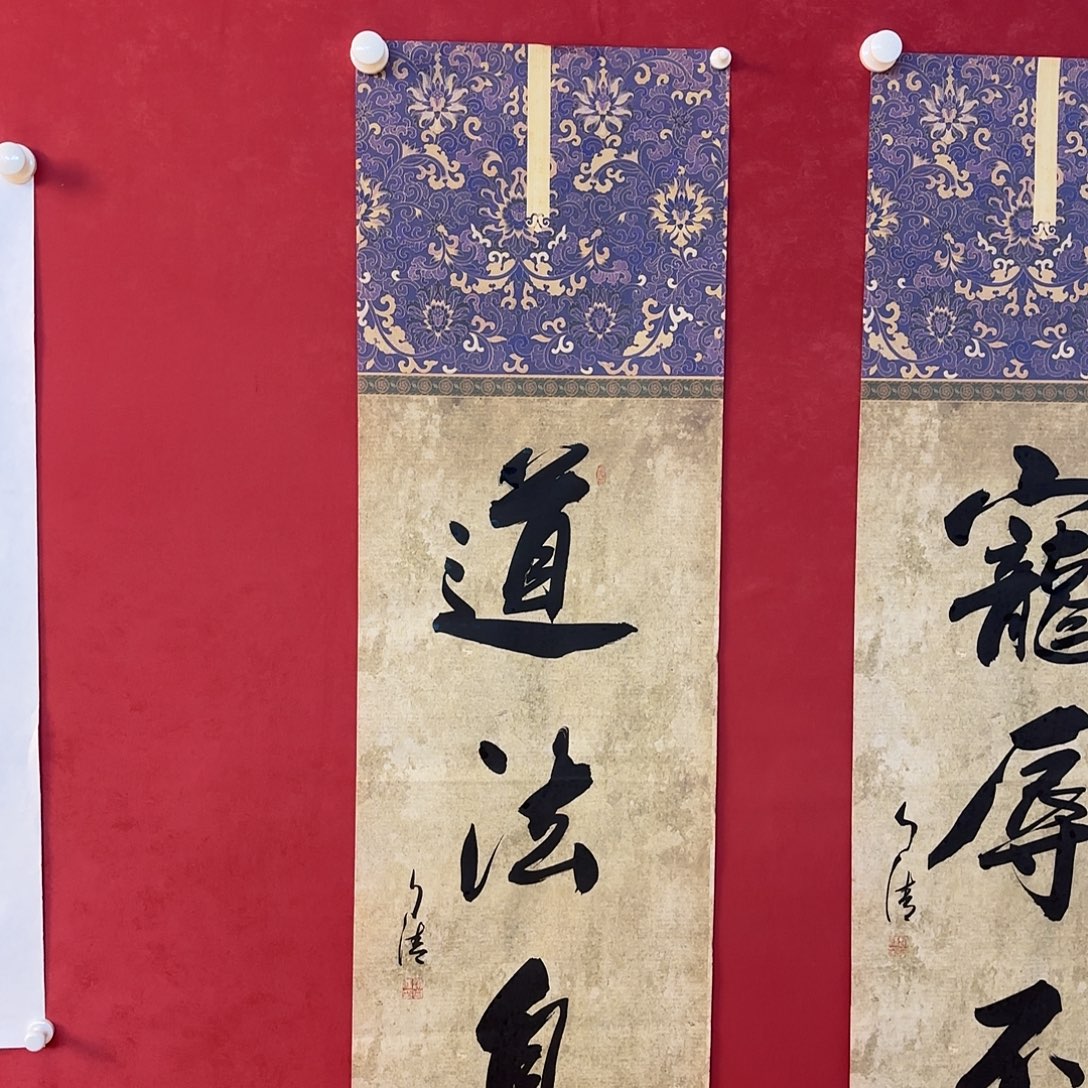 道法自
清
寵辱不
清